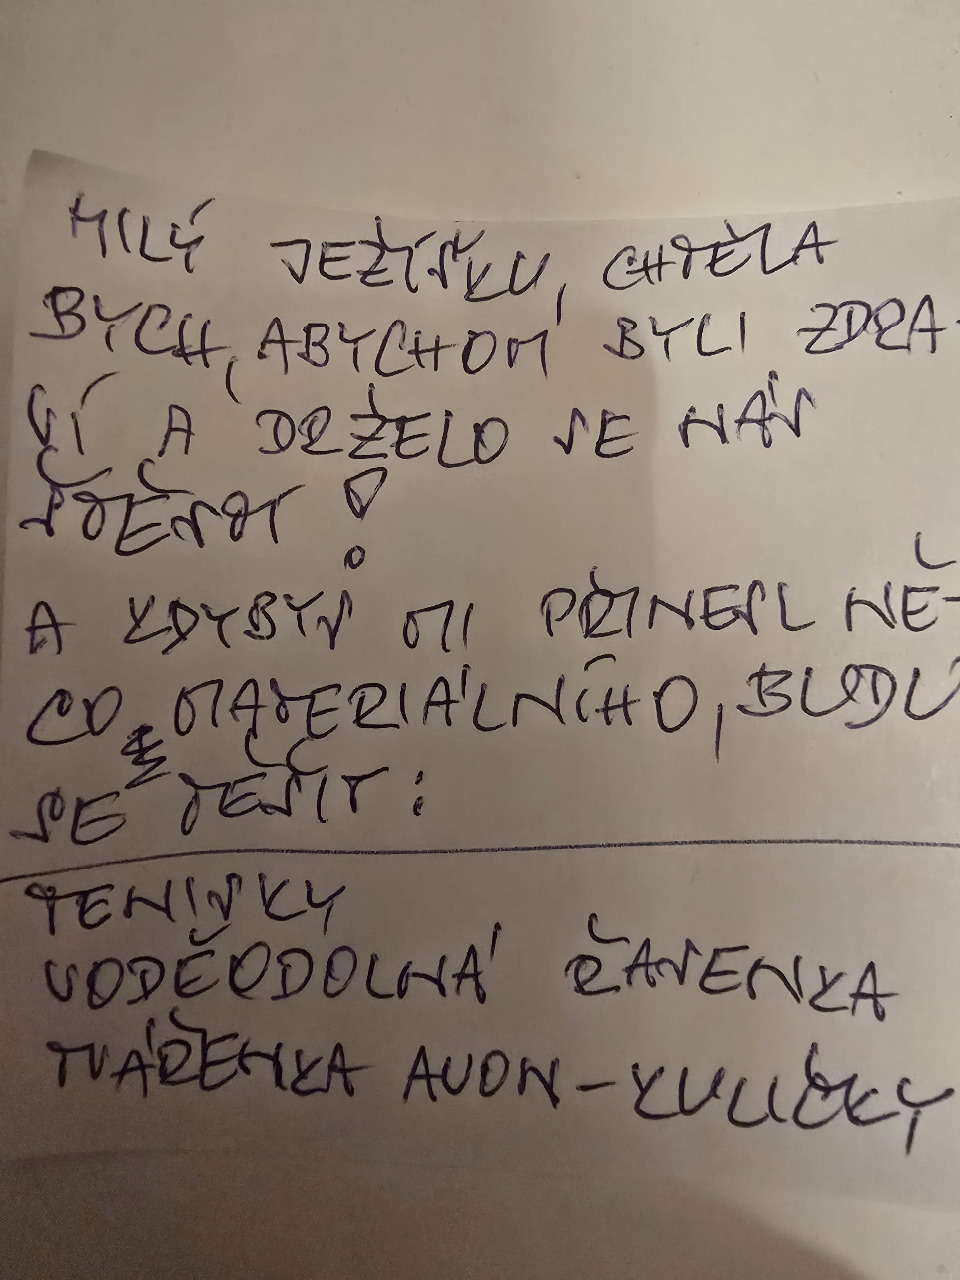 MILÝ JEŽÍŠKU, CHTĚLA
BYCH, ABYCHOM BYLI ZDRA-
VÍ A DRŽELO SE NÁS
ŠTĚSTÍ!
A KDYBYS MI PŘINESL NĚ-
CO MATERIÁLNÍHO, BUDU
SE TĚŠIT:
TENISKY
VODĚODOLNÁ ŘASENKA
TVÁŘENKA AVON-KULIČKY